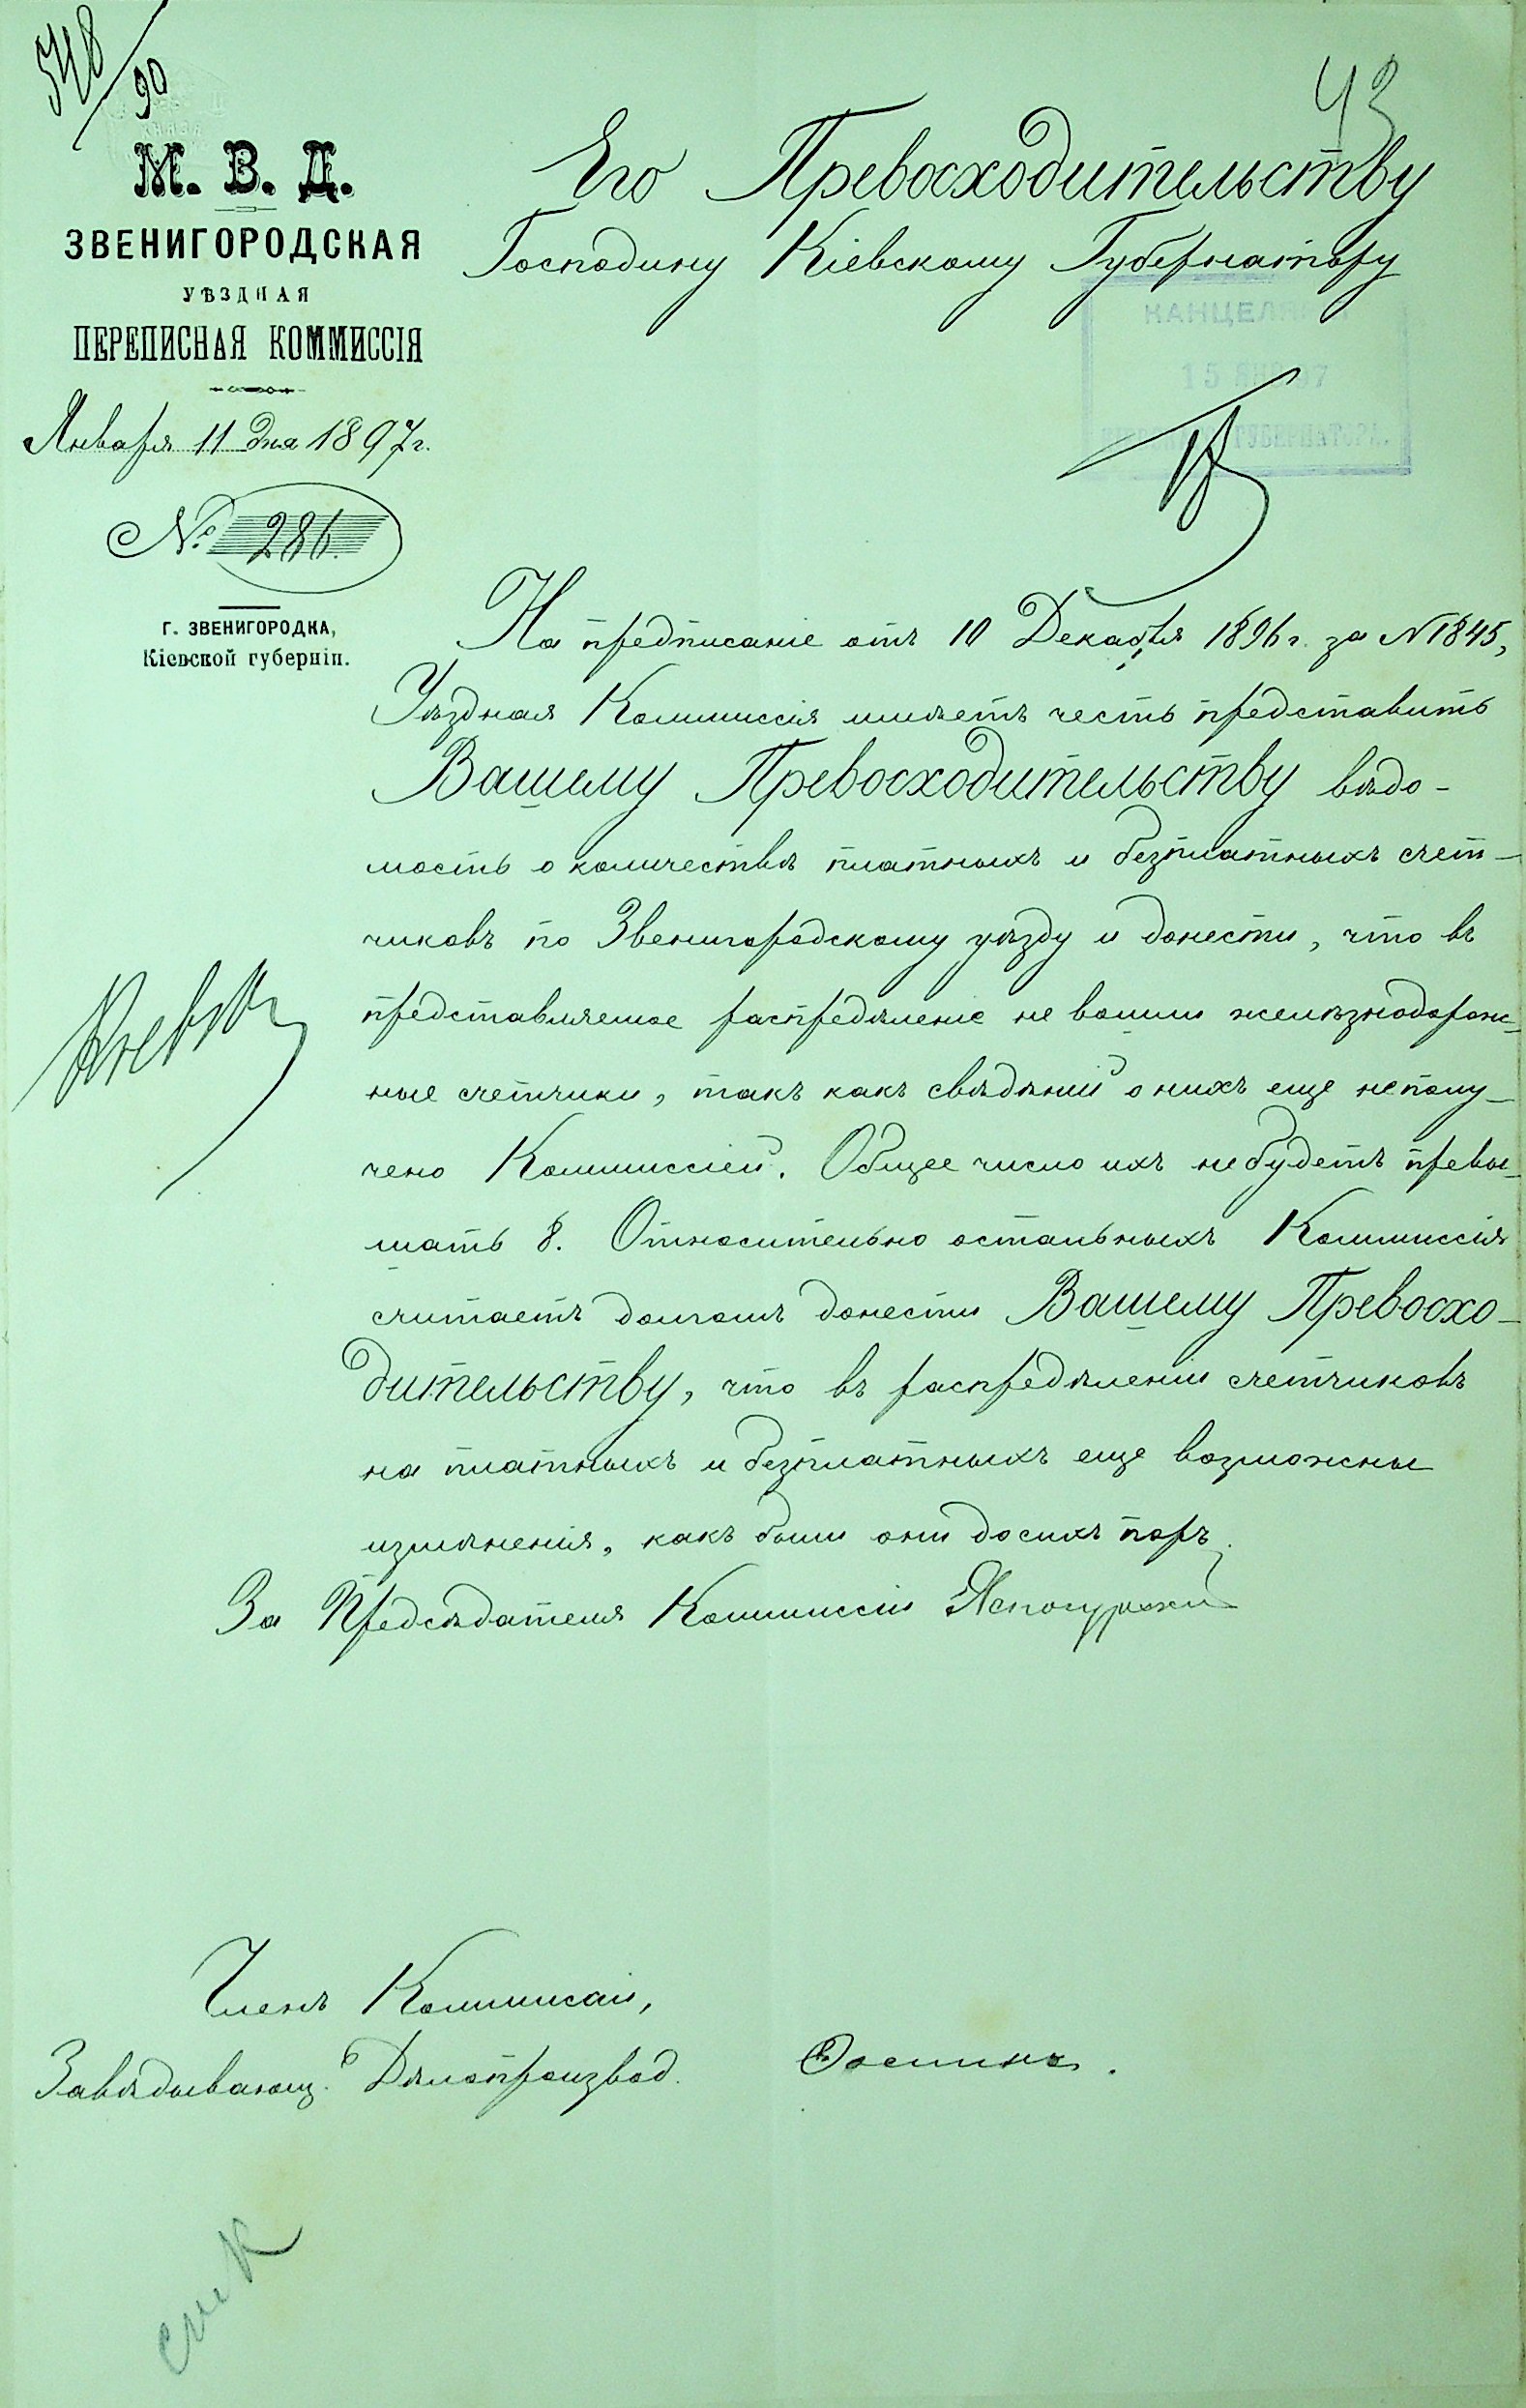 548/90
43
М. В. Д.
ЗВЕНИГОРОДСКАЯ
УѢЗДНАЯ
ПЕРЕПИСНАЯ КОММИССІЯ
Января 11 дня 1897 г.
№ 286.
Г. ЗВЕНИГОРОДКА,
Кіевской губерніи.
Его Превосходительству
Господину Кіевскому Губернатору
КАНЦЕЛЯРІЯ
15 ЯНВ 97
ГУБЕРНАТОРА.
На предписаніе отъ 10 Декабря 1896 г. за N 1845,
Уѣздная Коммиссія имѣетъ честь представить
Вашему Превосходительству вѣдо-
мость о количествѣ платныхъ и безплатныхъ счет-
чиковъ по Звенигородскому уѣзду и донести, что въ
представляемое распредѣленіе не вошли желѣзнодорож-
ные счетчики, такъ какъ свѣдѣній о нихъ еще не полу-
чено Коммиссіей. Общее число ихъ не будетъ превы-
шать 8. Относительно остальныхъ Коммиссія
считаетъ долгомъ донести Вашему Превосхо-
дительству, что въ распредѣленіи счетчиковъ
на платныхъ и безплатныхъ еще возможны
измѣненія, какъ были они до сихъ поръ.
За Предсѣдателя Коммиссіи
Членъ Коммиссіи,
Завѣдывающ. Дѣлопроизвод.